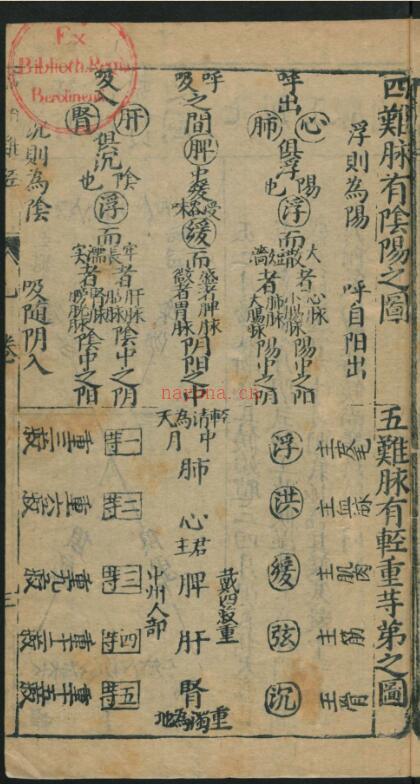 四難脉有陰陽之圖
浮則為陽 呼自阳出
呼出
心 肺
俱浮
陽也
浮而
大散者
心脉
小腸脉
陽中之阳
短濇者
肺脉
大腸脉
陽中之阴
呼吸之間
脾
受穀味
緩而
盛者脾脉
微者胃脉
阴阳之中
吸入
肝 腎
俱沉
陰也
浮而
牢長者
肝脉
胆脉
陰中之阳
濡実者
腎脉
陰中之阴
沉則為陰 吸随阴入
五難脉有輕重等第之圖
浮 洪 緩 弦 沉
主皮毛
主血脉
主肌肉
主筋
主骨
輕清為天
中月
肺 心 脾 肝 腎
君主
中州人部
重濁為地
一等 二等 三等 四等 五等
重三菽
重六菽
重九菽
重十二菽
重十五菽
Ex
Biblioth. Regia
Berolinensi
nayona.cn